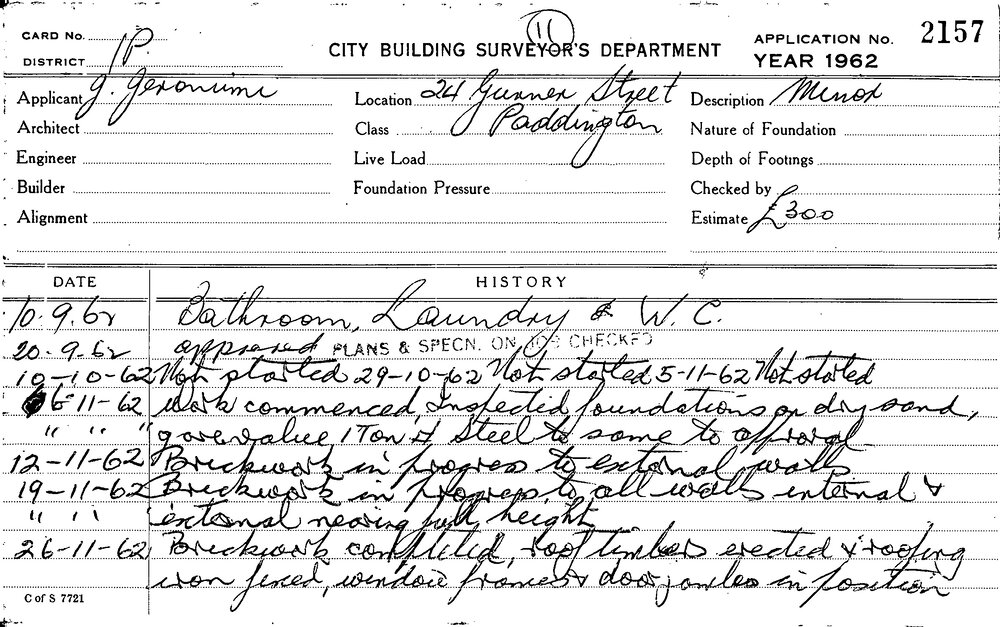 11
CARD No.
DISTRICT 1P
CITY BUILDING SURVEYOR'S DEPARTMENT
APPLICATION No. 2157
YEAR 1962
Applicant J. Geronimi
Location 24 Gurner Street
Description Minor
Architect
Class Paddington
Nature of Foundation
Engineer
Live Load
Depth of Footings
Builder
Foundation Pressure
Checked by
Alignment
Estimate £300
DATE HISTORY
10.9.62 Bathroom, Laundry & W.C.
20.9.62 approved PLANS & SPECN. ON JOB CHECKED
10-10-62 Not started 29-10-62 Not started 5-11-62 Not started
6-11-62 Work commenced, Inspected foundations on dry sand,
" " " gave value 1 Ton & Steel to same to approval
12-11-62 Brickwork in progress to external walls
19-11-62 Brickwork in progress to all walls internal &
" " " external nearing full height
26-11-62 Brickwork completed, roof timbers erected & roofing
iron fixed, window frames & door jambs in position
C of S 7721